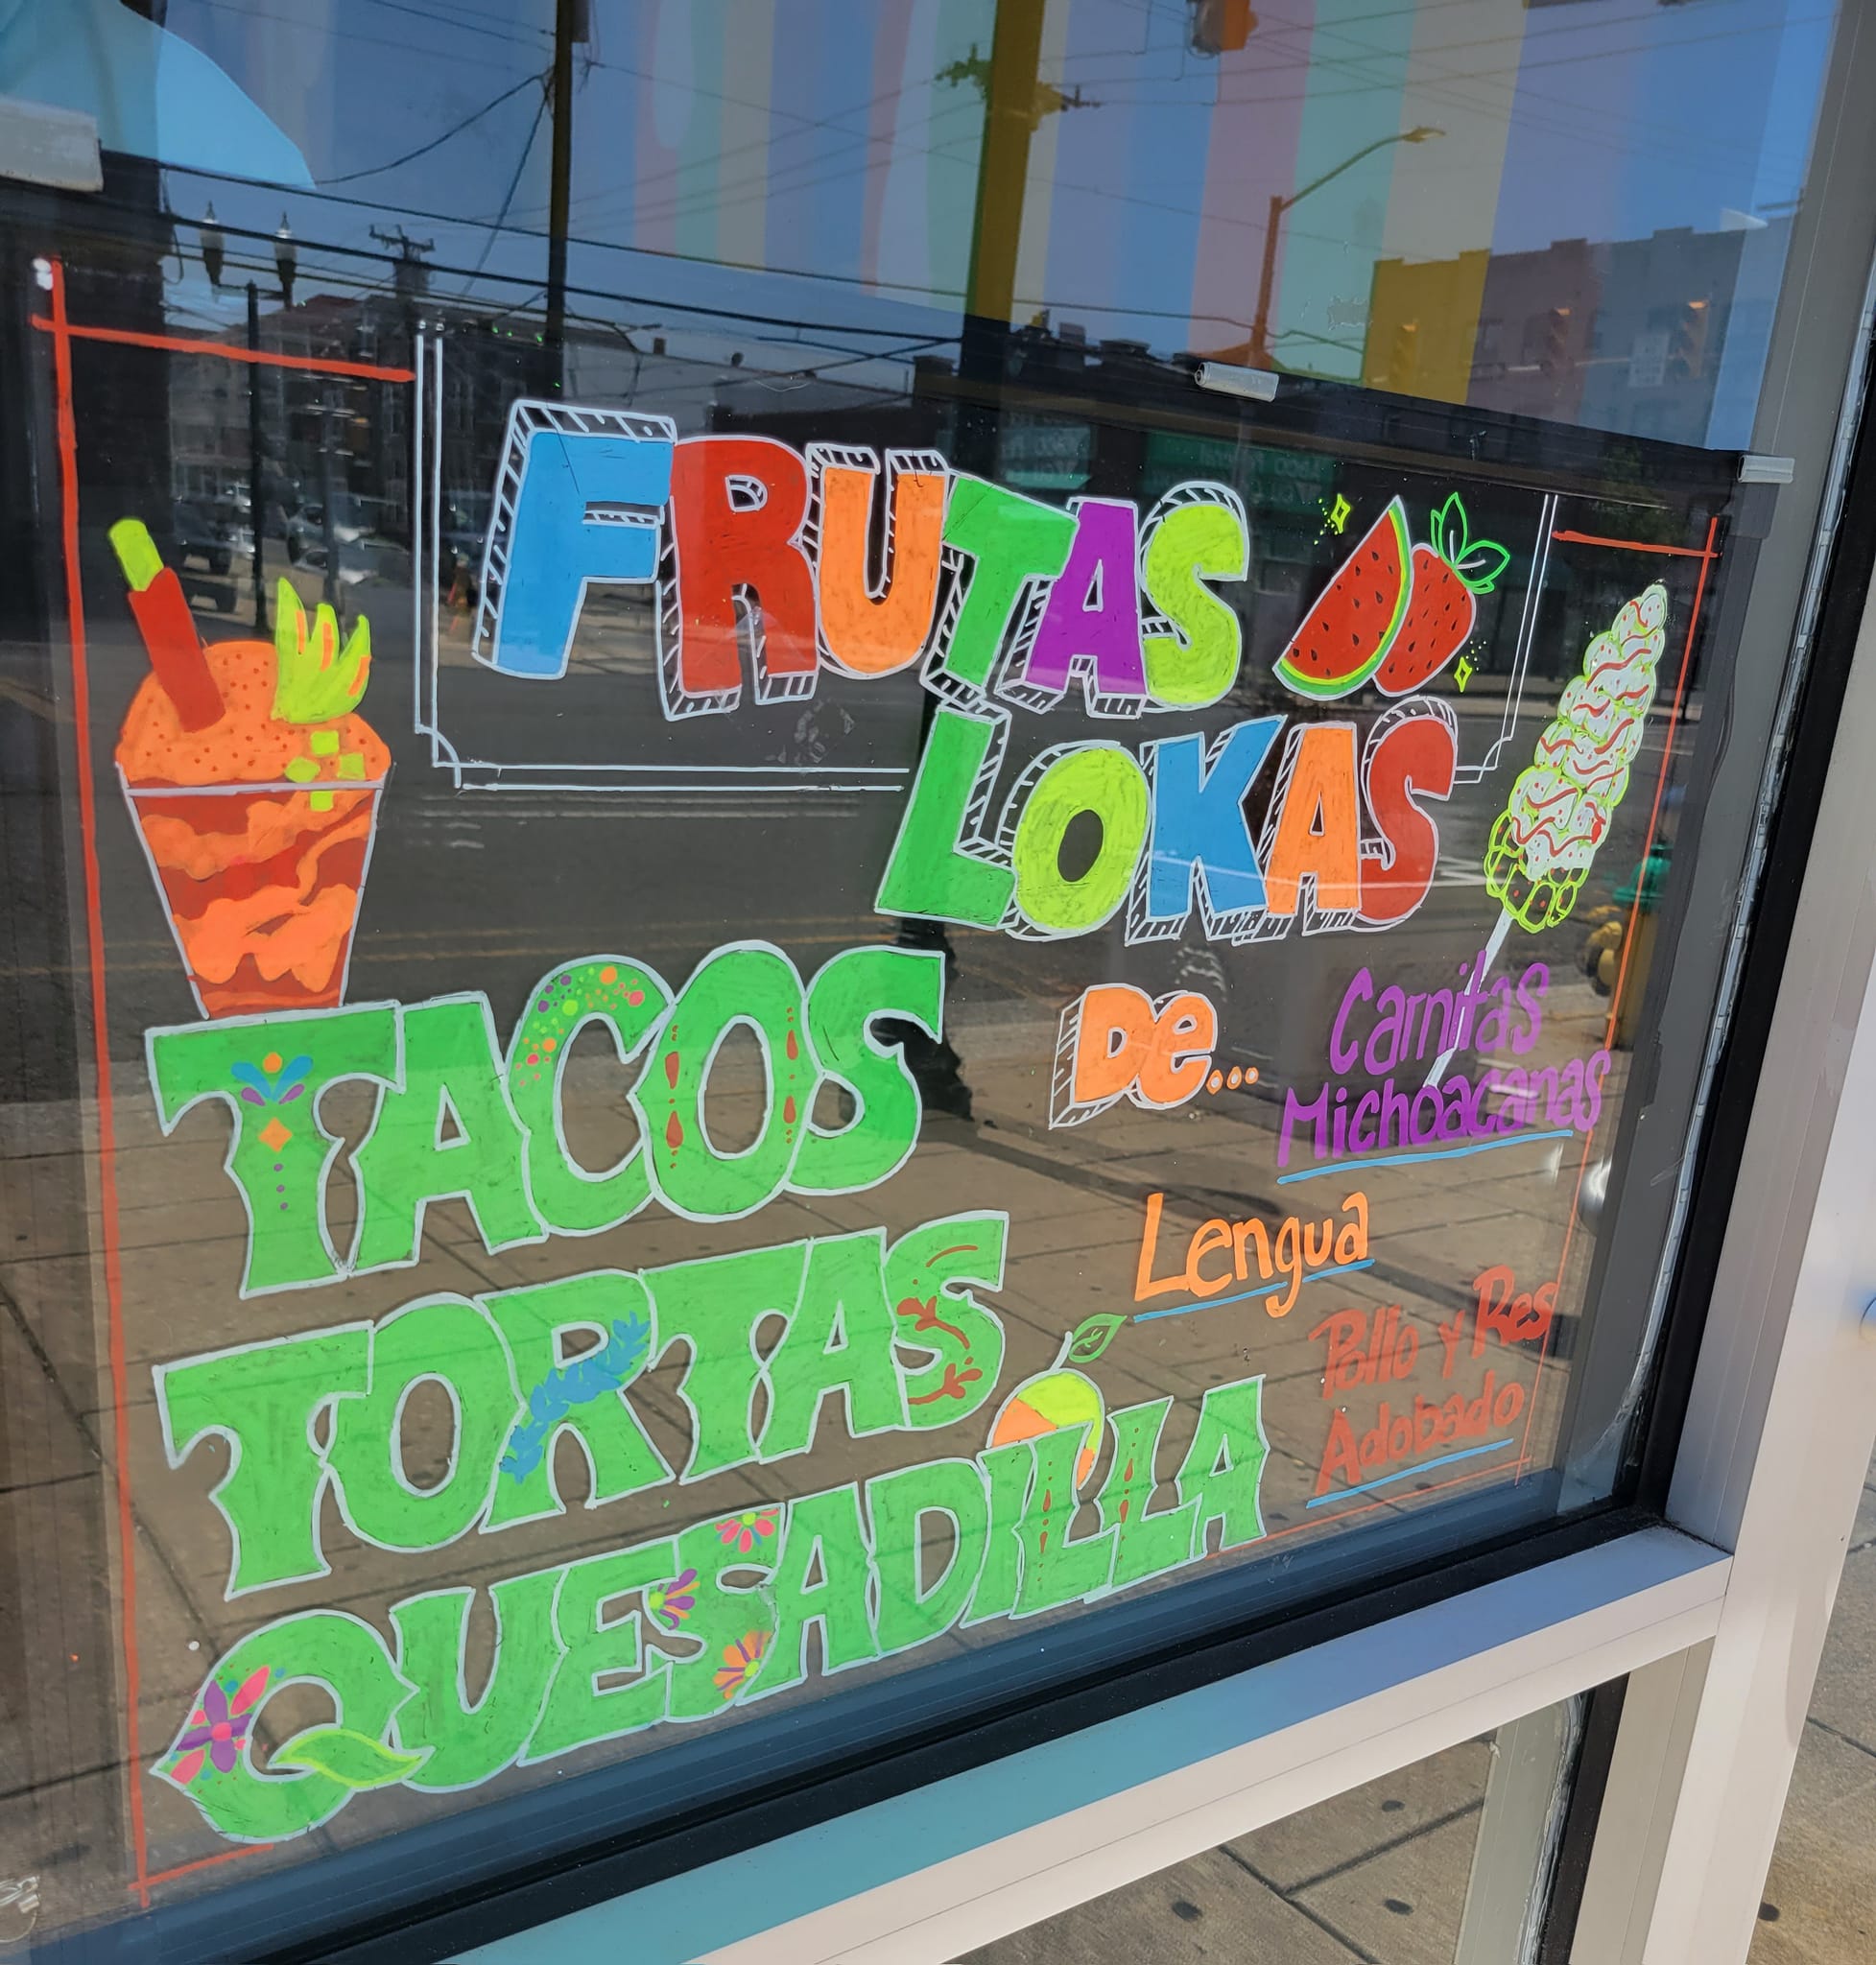 FRUTAS
LOKAS
TACOS
TORTAS
QUESADILLA
DE...
Carnitas
Michoacanas
Lengua
Pollo y Res
Adobado